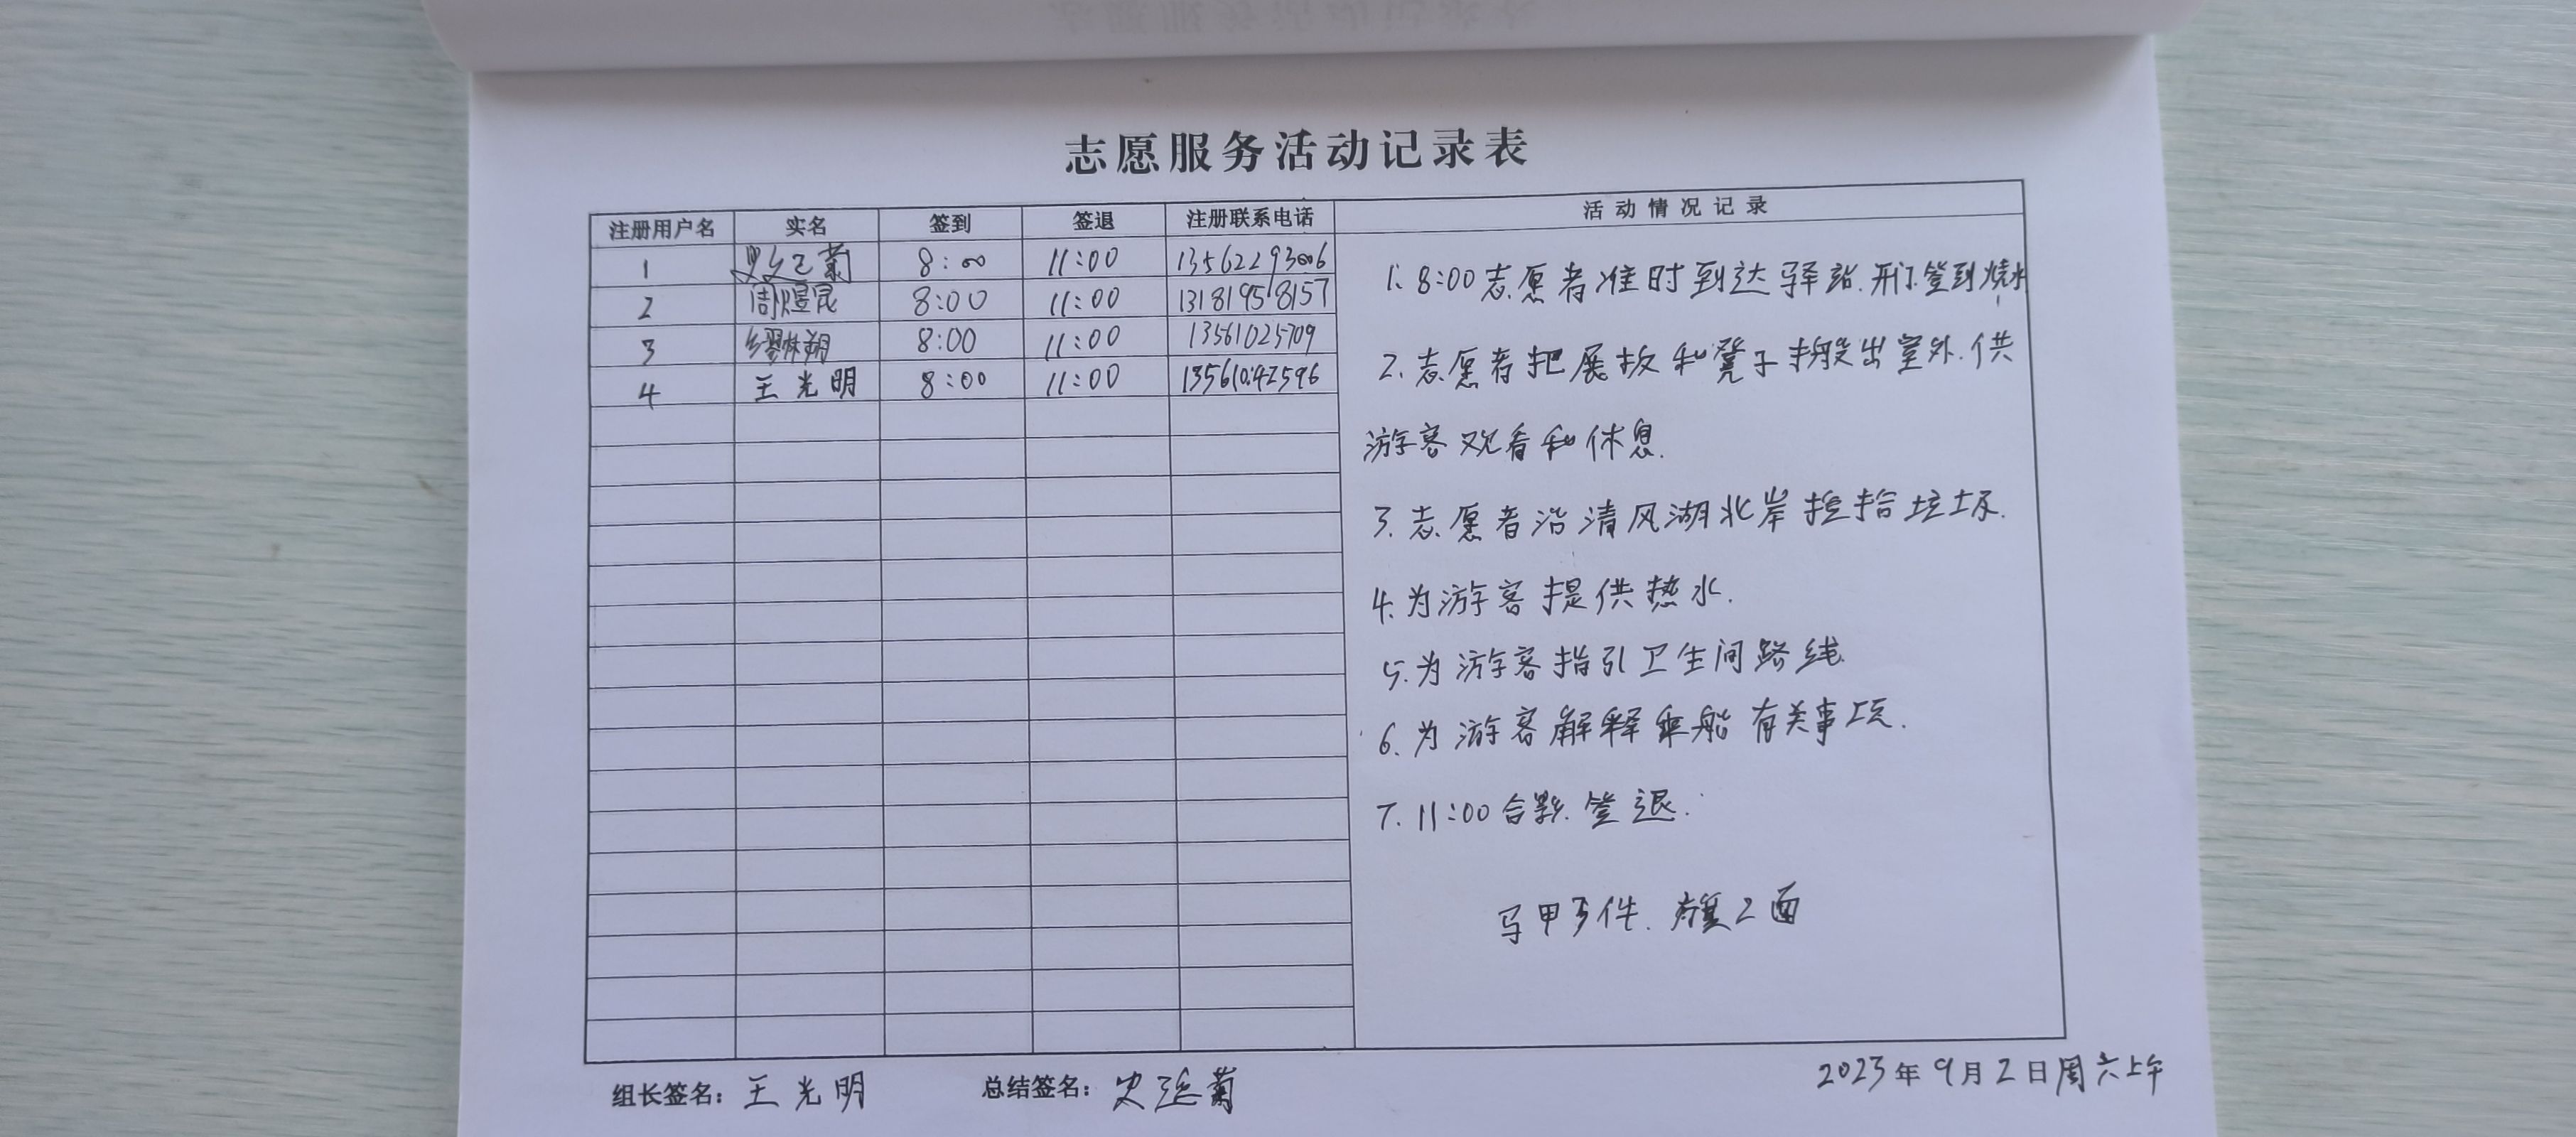 志愿服务活动记录表
注册用户名 实名 签到 签退 注册联系电话 活动情况记录
1 8:00 11:00 13562293006
2 周煜昆 8:00 11:00 13181958157
3 8:00 11:00 13561025709
4 王光明 8:00 11:00 13561042596
1. 8:00志愿者准时到达驿站.开门.签到烧水
2. 志愿者把展板和凳子搬出室外.供
游客观看和休息.
3. 志愿者沿清风湖北岸捡拾垃圾.
4. 为游客提供热水.
5. 为游客指引卫生间路线
6. 为游客解释乘船有关事项.
7. 11:00合影.签退.
马甲3件.旗2面
组长签名：王光明 总结签名：史延菊 2023年9月2日周六上午